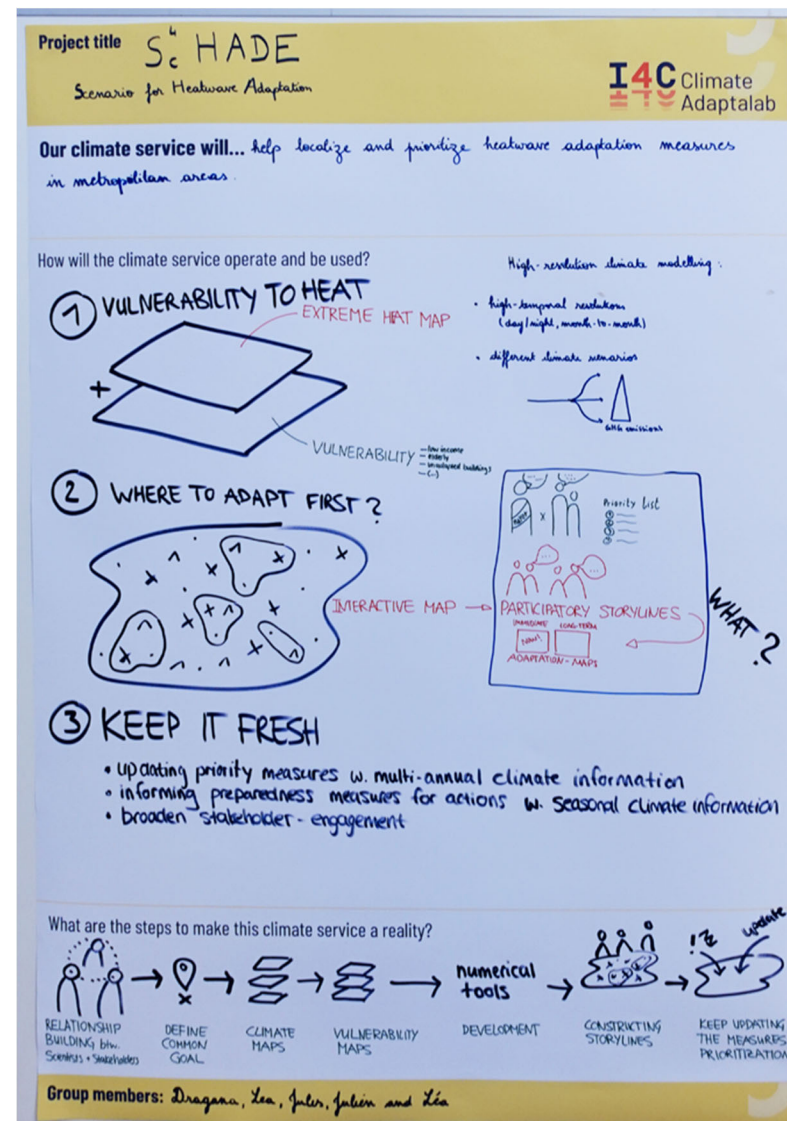 Project title S4cHADE
Scenario for Heatwave Adaptation
I4C Climate
Adaptalab
Our climate service will... help localize and prioritize heatwave adaptation measures
in metropolitan areas.
How will the climate service operate and be used?
1 VULNERABILITY TO HEAT
EXTREME HEAT MAP
+
VULNERABILITY
— low income
— elderly
— unadapted buildings
— (...)
High-resolution climate modelling:
• high-temporal resolutions
(day/night, month-to-month)
• different climate scenarios
GHG emissions
2 WHERE TO ADAPT FIRST?
INTERACTIVE MAP
Priority List
PARTICIPATORY STORYLINES
IMMEDIATE LONG-TERM
NOW!
ADAPTATION-MAPS
WHAT?
3 KEEP IT FRESH
• updating priority measures w. multi-annual climate information
• informing preparedness measures for actions w. seasonal climate information
• broaden stakeholder-engagement
What are the steps to make this climate service a reality?
RELATIONSHIP
BUILDING btw.
Scientists + Stakeholders
DEFINE
COMMON
GOAL
CLIMATE
MAPS
VULNERABILITY
MAPS
numerical
tools
DEVELOPMENT
CONSTRICTING
STORYLINES
!?
update
KEEP UPDATING
THE MEASURES
PRIORITIZATION
Group members: Dragana, Lea, Jules, Julien and Léa